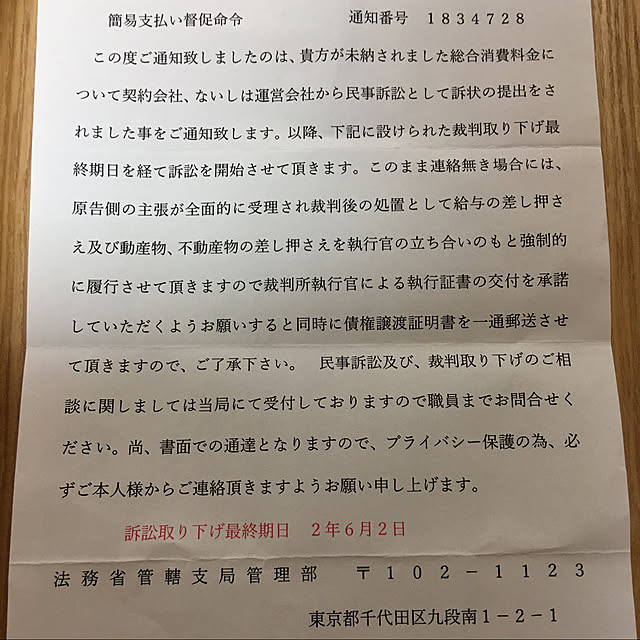 簡易支払い督促命令　通知番号　１８３４７２８
この度ご通知致しましたのは、貴方が未納されました総合消費料金に
ついて契約会社、ないしは運営会社から民事訴訟として訴状の提出をさ
れました事をご通知致します。以降、下記に設けられた裁判取り下げ最
終期日を経て訴訟を開始させて頂きます。このまま連絡無き場合には、
原告側の主張が全面的に受理され裁判後の処置として給与の差し押さ
え及び動産物、不動産物の差し押さえを執行官の立ち合いのもと強制的
に履行させて頂きますので裁判所執行官による執行証書の交付を承諾
していただくようお願いすると同時に債権譲渡証明書を一通郵送させ
て頂きますので、ご了承下さい。　民事訴訟及び、裁判取り下げのご相
談に関しましては当局にて受付しておりますので職員までお問合せく
ださい。尚、書面での通達となりますので、プライバシー保護の為、必
ずご本人様からご連絡頂きますようお願い申し上げます。
訴訟取り下げ最終期日　２年６月２日
法務省管轄支局管理部　〒１０２－１１２３
東京都千代田区九段南１－２－１